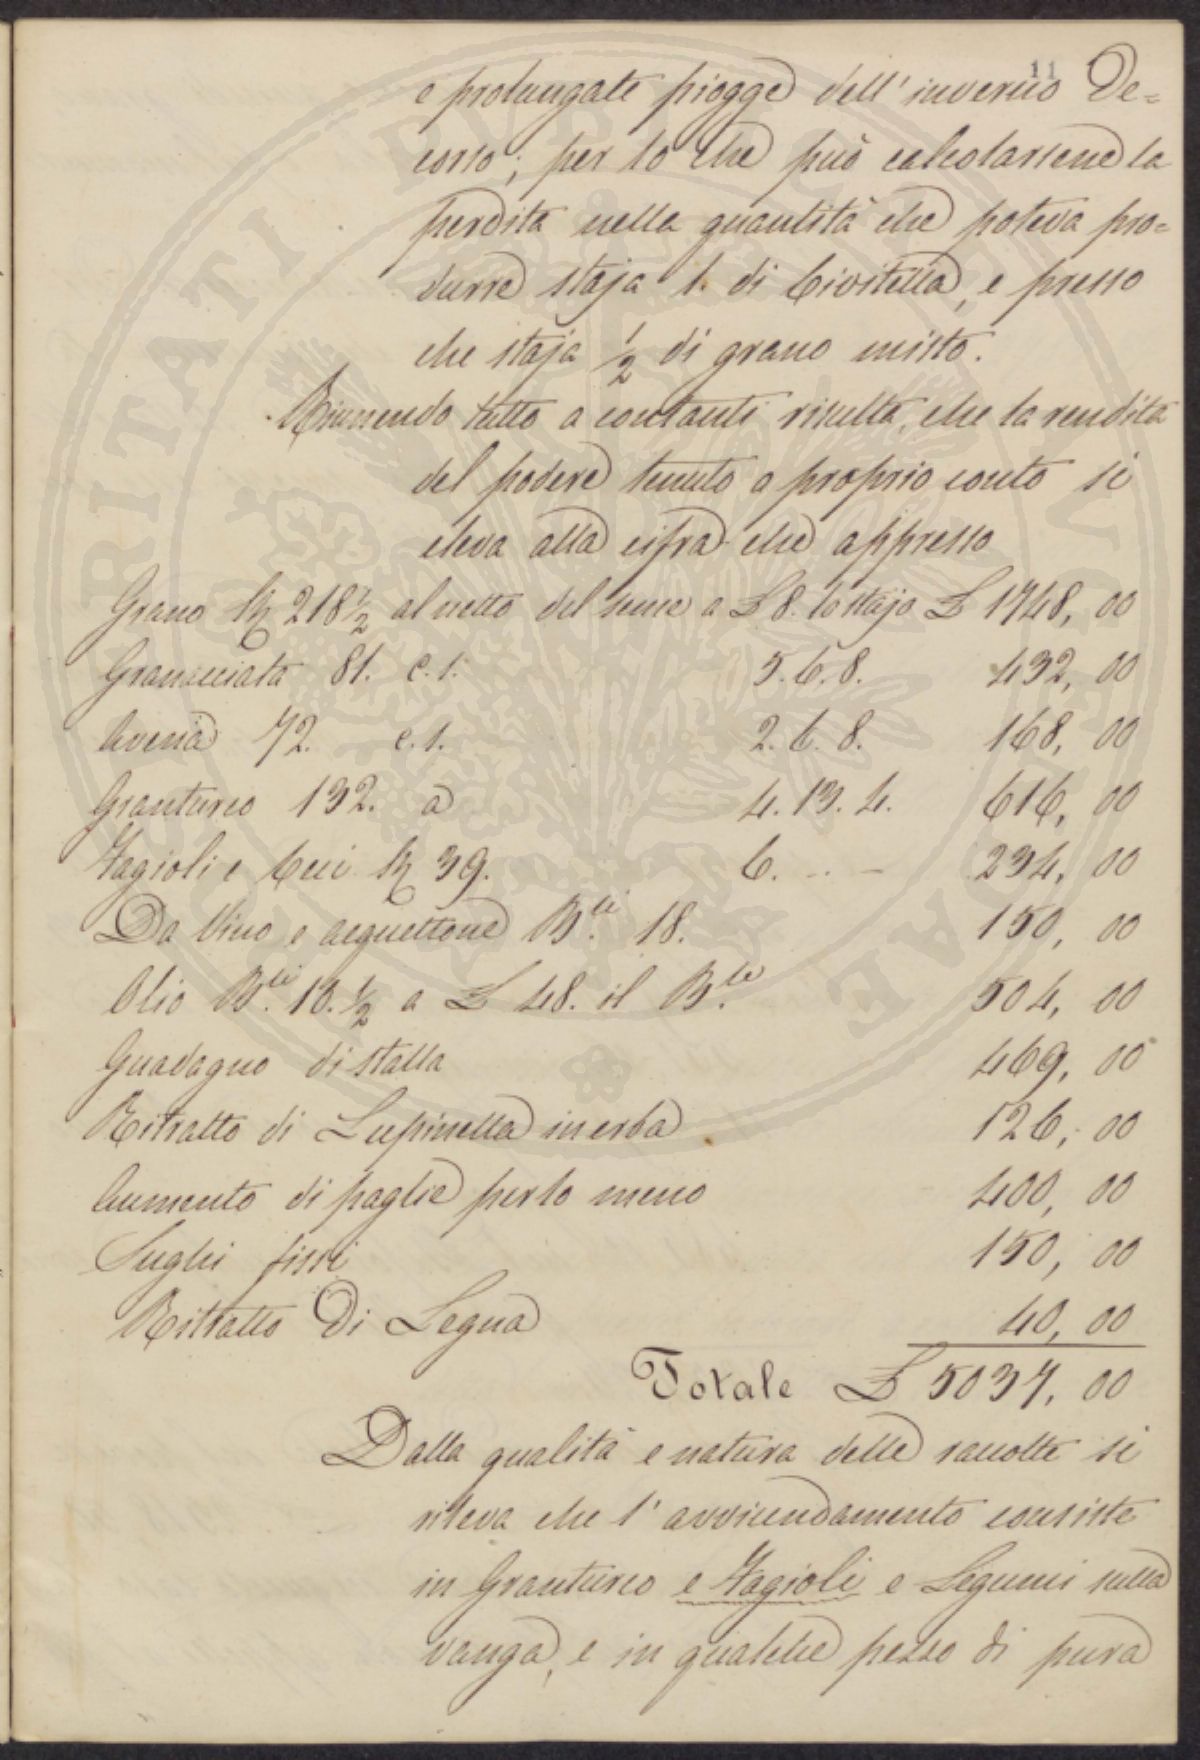 11
e prolungate piogge dell'inverno De=
corso; per lo che può calcolarsene la
perdita nella quantità che poteva pro=
durre staja 1. di Civitella, e presso
che staja 1/2 di grano misto.
Riunendo tutto a contanti risulta, che la rendita
del podere tenuto a proprio conto si
eleva alla cifra che appresso
Grano St 218 1/2 al netto del seme a £ 8. lo stajo £ 1748, 00
Granacciata 81. c.s. 5.6.8. 432, 00
Avena 72. c.s. 2.6.8. 168, 00
Granturco 132. a 4.13.4. 616, 00
Fagioli e Ceci St 39. 6. .. - 234, 00
Da Vino e acquettone B.li 18. 150, 00
Olio B.li 10. 1/2 a £ 48. il B.le 504, 00
Guadagno di stalla 469, 00
Ritratto di Lupinella in erba 126, 00
Aumento di paglie per lo meno 400, 00
Sughi fissi 150, 00
Ritratto Di Legna 40, 00
Totale £ 5037, 00
Dalla qualità e natura delle raccolte si
rileva che l'avvicendamento consiste
in Granturco e Fagioli e Legumi sulla
vanga, e in qualche pezzo di pura